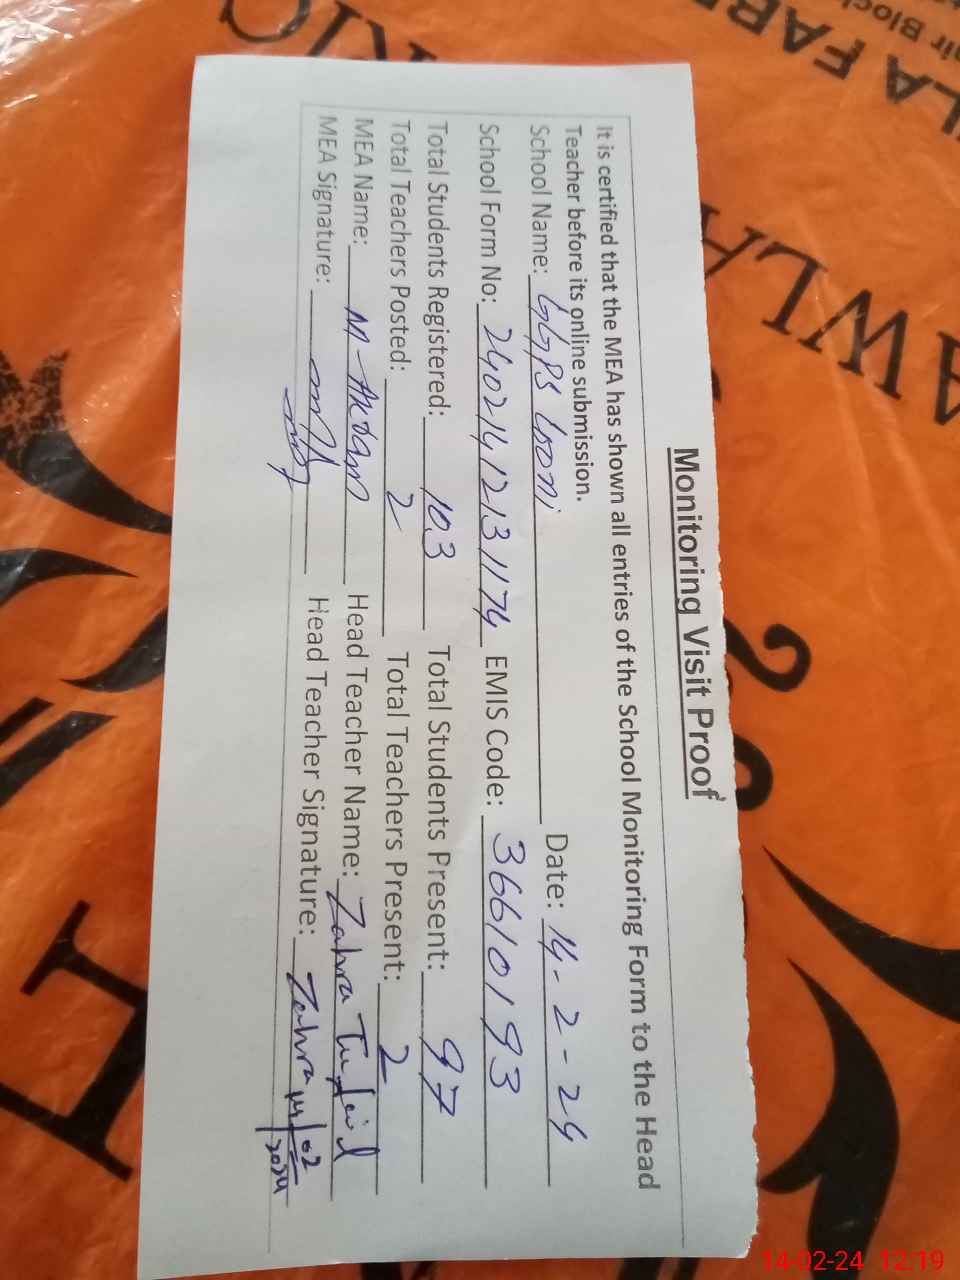 Monitoring Visit Proof
It is certified that the MEA has shown all entries of the School Monitoring Form to the Head
Teacher before its online submission.
School Name: GGPS Looni Date: 14-2-24
School Form No: 24021412131174 EMIS Code: 36610193
Total Students Registered: 103 Total Students Present: 97
Total Teachers Posted: 2 Total Teachers Present: 2
MEA Name: M-Akram Head Teacher Name: Zahra Tufail
MEA Signature: Head Teacher Signature: Zahra 14/02
2024
14-02-24 12:19